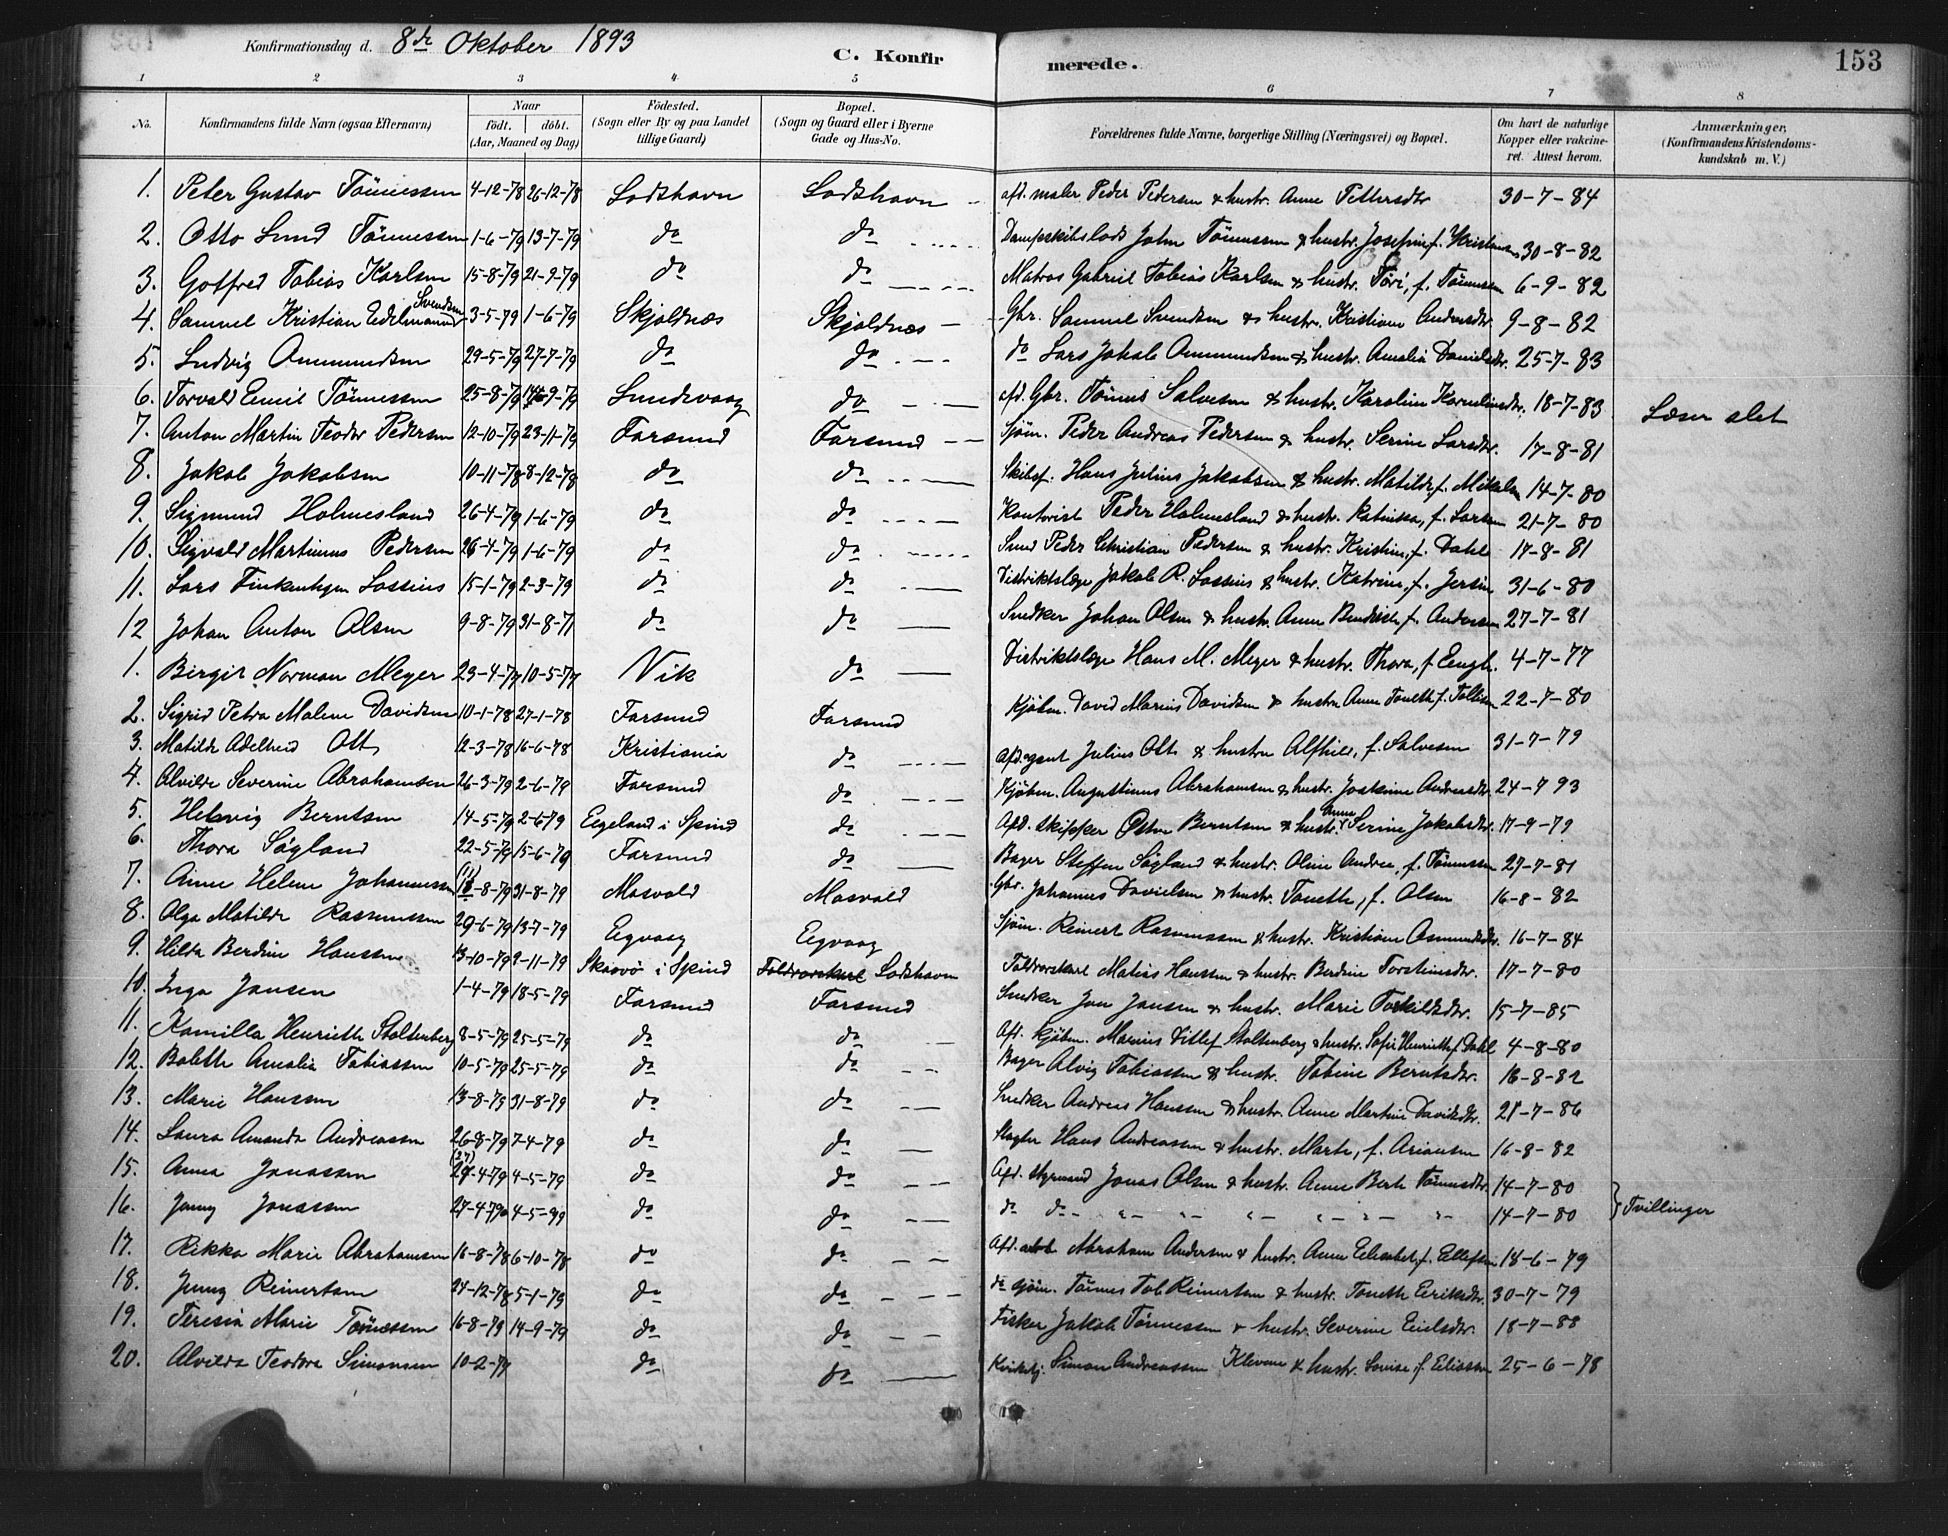 Konfirmationsdag d. 8de Oktober 1893
C. Konfirmerede.
153
1 2 3 4 5 6 7 8
No.
Konfirmandens fulde Navn (ogsaa Efternavn)
Naar
födt. döbt.
(Aar, Maaned og Dag)
Födested.
(Sogn eller By og paa Landet
tillige Gaard)
Bopæl.
(Sogn og Gaard eller i Byerne
Gade og Hus-No.
Forældrenes fulde Navne, borgerlige Stilling (Næringsvei) og Bopæl.
Om havt de naturlige
Kopper eller vakcine-
ret. Attest herom.
Anmærkninger,
(Konfirmandens Kristendoms-
kundskab m. V.)
1. Peter Gustav Tönnessen 4-12-78 26-12-78 Lodshavn Lodshavn afd. maler Peder Pedersen & hustr. Anne Pettersdtr 30-7-84
2. Otto Lund Tönnessen 1-6-79 13-7-79 do do Dampskibslods John Tönnessen & hustr. Josefine f. 30-8-82
3. Gotfred Tobias Karlsen 15-8-79 21-9-79 do do Matros Gabriel Tobias Karlsen & hustr. Töri, f. Tönnessen 6-9-82
4. Samuel Kristian Edelmann Svendsen 3-5-79 1-6-79 Skjoldnæs Skjoldnæs Gbr. Samuel Svendsen & hustr. Kristiane Andersdtr. 9-8-82
5. Ludvig Ommundsen 29-5-79 27-7-79 do do do Lars Jakob Ommundsen & hustr. Amalia Danielsdtr. 25-7-83
6. Torvald Emil Tönnessen 25-8-79 14-9-79 Sundsvaag do afd. Gbr. Tönnes Salvesen & hustr. Karoline Korneliusdtr. 18-7-83 Læser slet
7. Anton Martin Teodor Pedersen 12-10-79 23-11-79 Farsund Farsund Sjöm. Peder Andreas Pedersen & hustr. Serine Larsdtr. 17-8-81
8. Jakob Jakobsen 10-11-78 8-12-78 do do Skibsf. Hans Julius Jakobsen & hustr. Matilde, f. 14-7-80
9. Sigmund Holmesland 26-4-79 1-6-79 do do Kontorist Peder Holmesland & hustr. Katinka, f. Larsen 21-7-80
10. Sigvald Martinus Pedersen 26-4-79 1-6-79 do do Smed Peder Christian Pedersen & hustr. Kristine, f. Dahl 17-8-81
11. Lars Finkenhagen Lossius 15-1-79 2-3-79 do do Distriktslæge Jakob R. Lossius & hustr. Katrine, f. Jersin 31-6-80
12 Johan Anton Olsen 9-8-79 31-8-71 do do Snedker Johan Olsen & hustr. Anne Bendikte, f. Andersen 27-7-81
1. Birgit Norman Meyer 23-4-77 10-5-77 Vik do Distriktslæge Hans M. Meyer & hustr. Thora, f. Eengh. 4-7-77
2. Sigrid Petra Malene Davidsen 10-1-78 27-1-78 Farsund Farsund Kjöbm. David Marius Davidsen & hustru Anne Tonette, f. 22-7-80
3. Matilde Adelheid Ott 12-3-78 16-6-78 Kristiania do Afd. agent Julius Ott & hustru Alfhild, f. Salvesen 31-7-79
4. Alvilde Severine Abrahamsen 26-3-79 2-6-79 Farsund do Kjöbm. Augustinus Abrahamsen & hustr. Josefine Andersdtr. 24-7 93
5. Helsvig Berntsen 14-5-79 2-6-79 Eegeland i Spind do Afd. Skipper Osten Berntsen & hustr. Anne Serine Jakobsdtr. 17-9-79
6. Thora Sögland 22-5-79 15-6-79 Farsund do Bager Steffen Sögland & hustr. Oline Andrea, f. Tönnessen 27-7-81
7. Anne Helene Johannessen (11) -8-79 31-8-79 Mosvold Mosvold Gbr. Johannes Danielsen & hustr. Tonette, f. Olsen 16-8-82
8. Olga Matilde Rasmussen 29-6-79 13-7-79 Eegvaag Eegvaag Sjöm. Reinert Rasmussen & hustr. Kristiane Osmundsdtr. 16-7-84
9. Hilda Berdine Hanssen 13-10-79 2-11-79 Skarvö i Spind Toldroerskarl Lodshavn Toldroerskarl Matias Hanssen & hustr. Berdine Torstensdtr. 17-7-80
10. Inga Jansen 1-4-79 18-5-79 Farsund Farsund Snedker Jan Jansen & hustr. Marie Torkildsdtr. 15-7-85
11. Kamilla Henriette Stoltenberg 8-5-79 25-5-79 do do Afd. Kjöbm. Marius Ditlef Stoltenberg & hustr. Sofie Henriette f. Dahl 4-8-80
12. Bolette Amalia Tobiassen 10-5-79 25-5-79 do do Bager Alvig Tobiassen & hustr. Tobine Berntsdtr. 16-8-82
13. Marie Hanssen 13-8-79 31-8-79 do do Snedker Andreas Hanssen & hustr. Anne Martine Davidsdtr. 21-7-86
14. Laura Amanda Andreassen 26-8-79 7-4-79 do do Slagter Hans Andreassen & hustr. Marte, f. Ariansen 16-8-82
15. Anna Jonassen (27) 24-4-79 4-5-79 do do Afd. Styrmand Jonas Olsen & hustr. Anne Berte Tönnesdtr. 14-7-80
16. Jenny Jonassen 27-4-79 4-5-79 do do do do 14-7-80 } Tvillinger
17. Rikka Marie Abrahamsen 16-8-78 6-10-78 do do Afd. Abraham Andersen & hustr. Anne Elisabet, f. Ellefsen 18-6-79
18. Jenny Reinertsen 24-12-78 5-1-79 do do do sjöm. Tönnes Tob. Reinertsen & hustr. Tonette Eriksdtr. 30-7-79
19. Teresia Marie Tönnessen 16-8-79 14-9-79 do do Fisker Jakob Tönnessen & hustr. Severine Eielsdtr. 18-7-88
20. Alvilda Teodora Simonsen 10-2-79 do do Simon Andreassen Klevene & hustr. Lovise, f. Eliassen 25-6-78